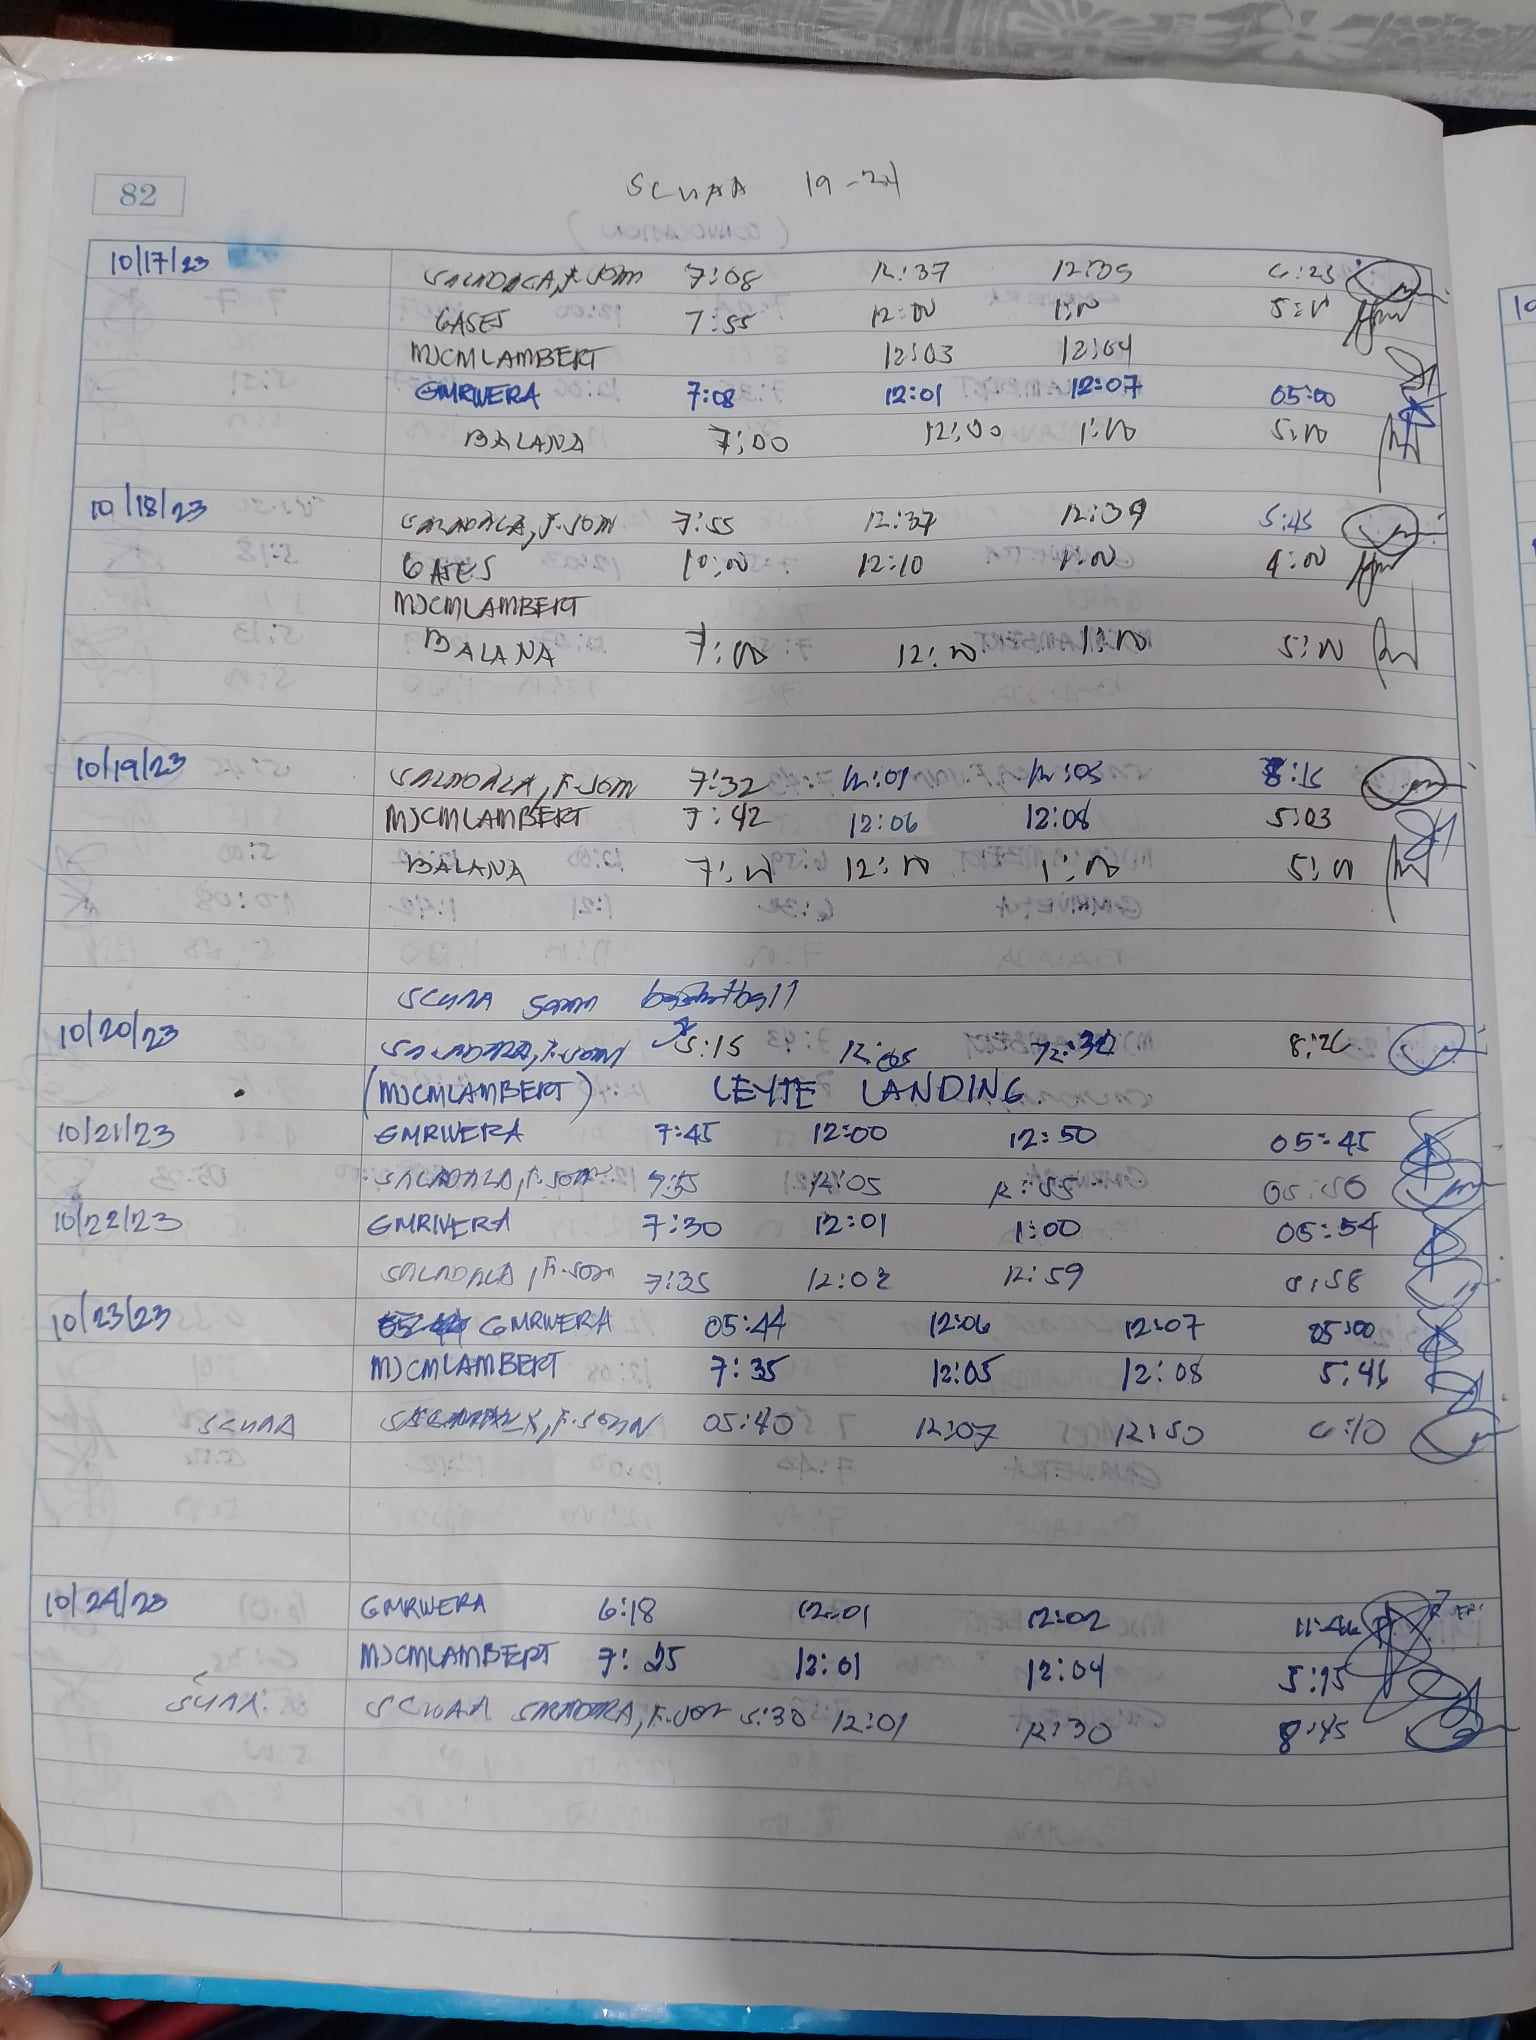 82
SCUAA 19-24
10/17/23
SALADAGA, F. JOHN 7:08 12:37 12:39 6:23
GASES 7:55 12:00 1:00 5:00
MJCMLAMBERT 12:03 12:04
GMRIVERA 7:08 12:01 12:07 05:00
BALANA 7:00 12:00 1:00 5:00
10/18/23
F. JOHN 7:55 12:37 12:39 5:45
GASES 10:00 12:10 1:00 4:00
MJCMLAMBERT
BALANA 7:00 12:00 1:00 5:00
10/19/23
F. JOHN 7:32 12:01 12:05 8:15
MJCMLAMBERT 7:42 12:06 12:08 5:03
BALANA 7:00 12:00 1:00 5:00
SCUAA basketball
10/20/23 F. JOHN 5:15 12:05 8:26
(MJCMLAMBERT) LEYTE LANDING.
10/21/23 GMRIVERA 7:45 12:00 12:50 05:45
F. JOHN 7:55 12:05 12:55 05:50
10/22/23 GMRIVERA 7:30 12:01 1:00 05:54
F. JOHN 7:35 12:02 12:59
10/23/23 GMRIVERA 05:44 12:06 12:07 05:00
MJCMLAMBERT 7:35 12:05 12:08 5:46
SCUAA F. JOHN 05:40 12:07 12:50 6:10
10/24/23 GMRIVERA 6:18 12:01 12:02 11:46
MJCMLAMBERT 7:25 12:01 12:04 5:15
SCUAA F. JOHN 5:30 12:01 12:30 8:45